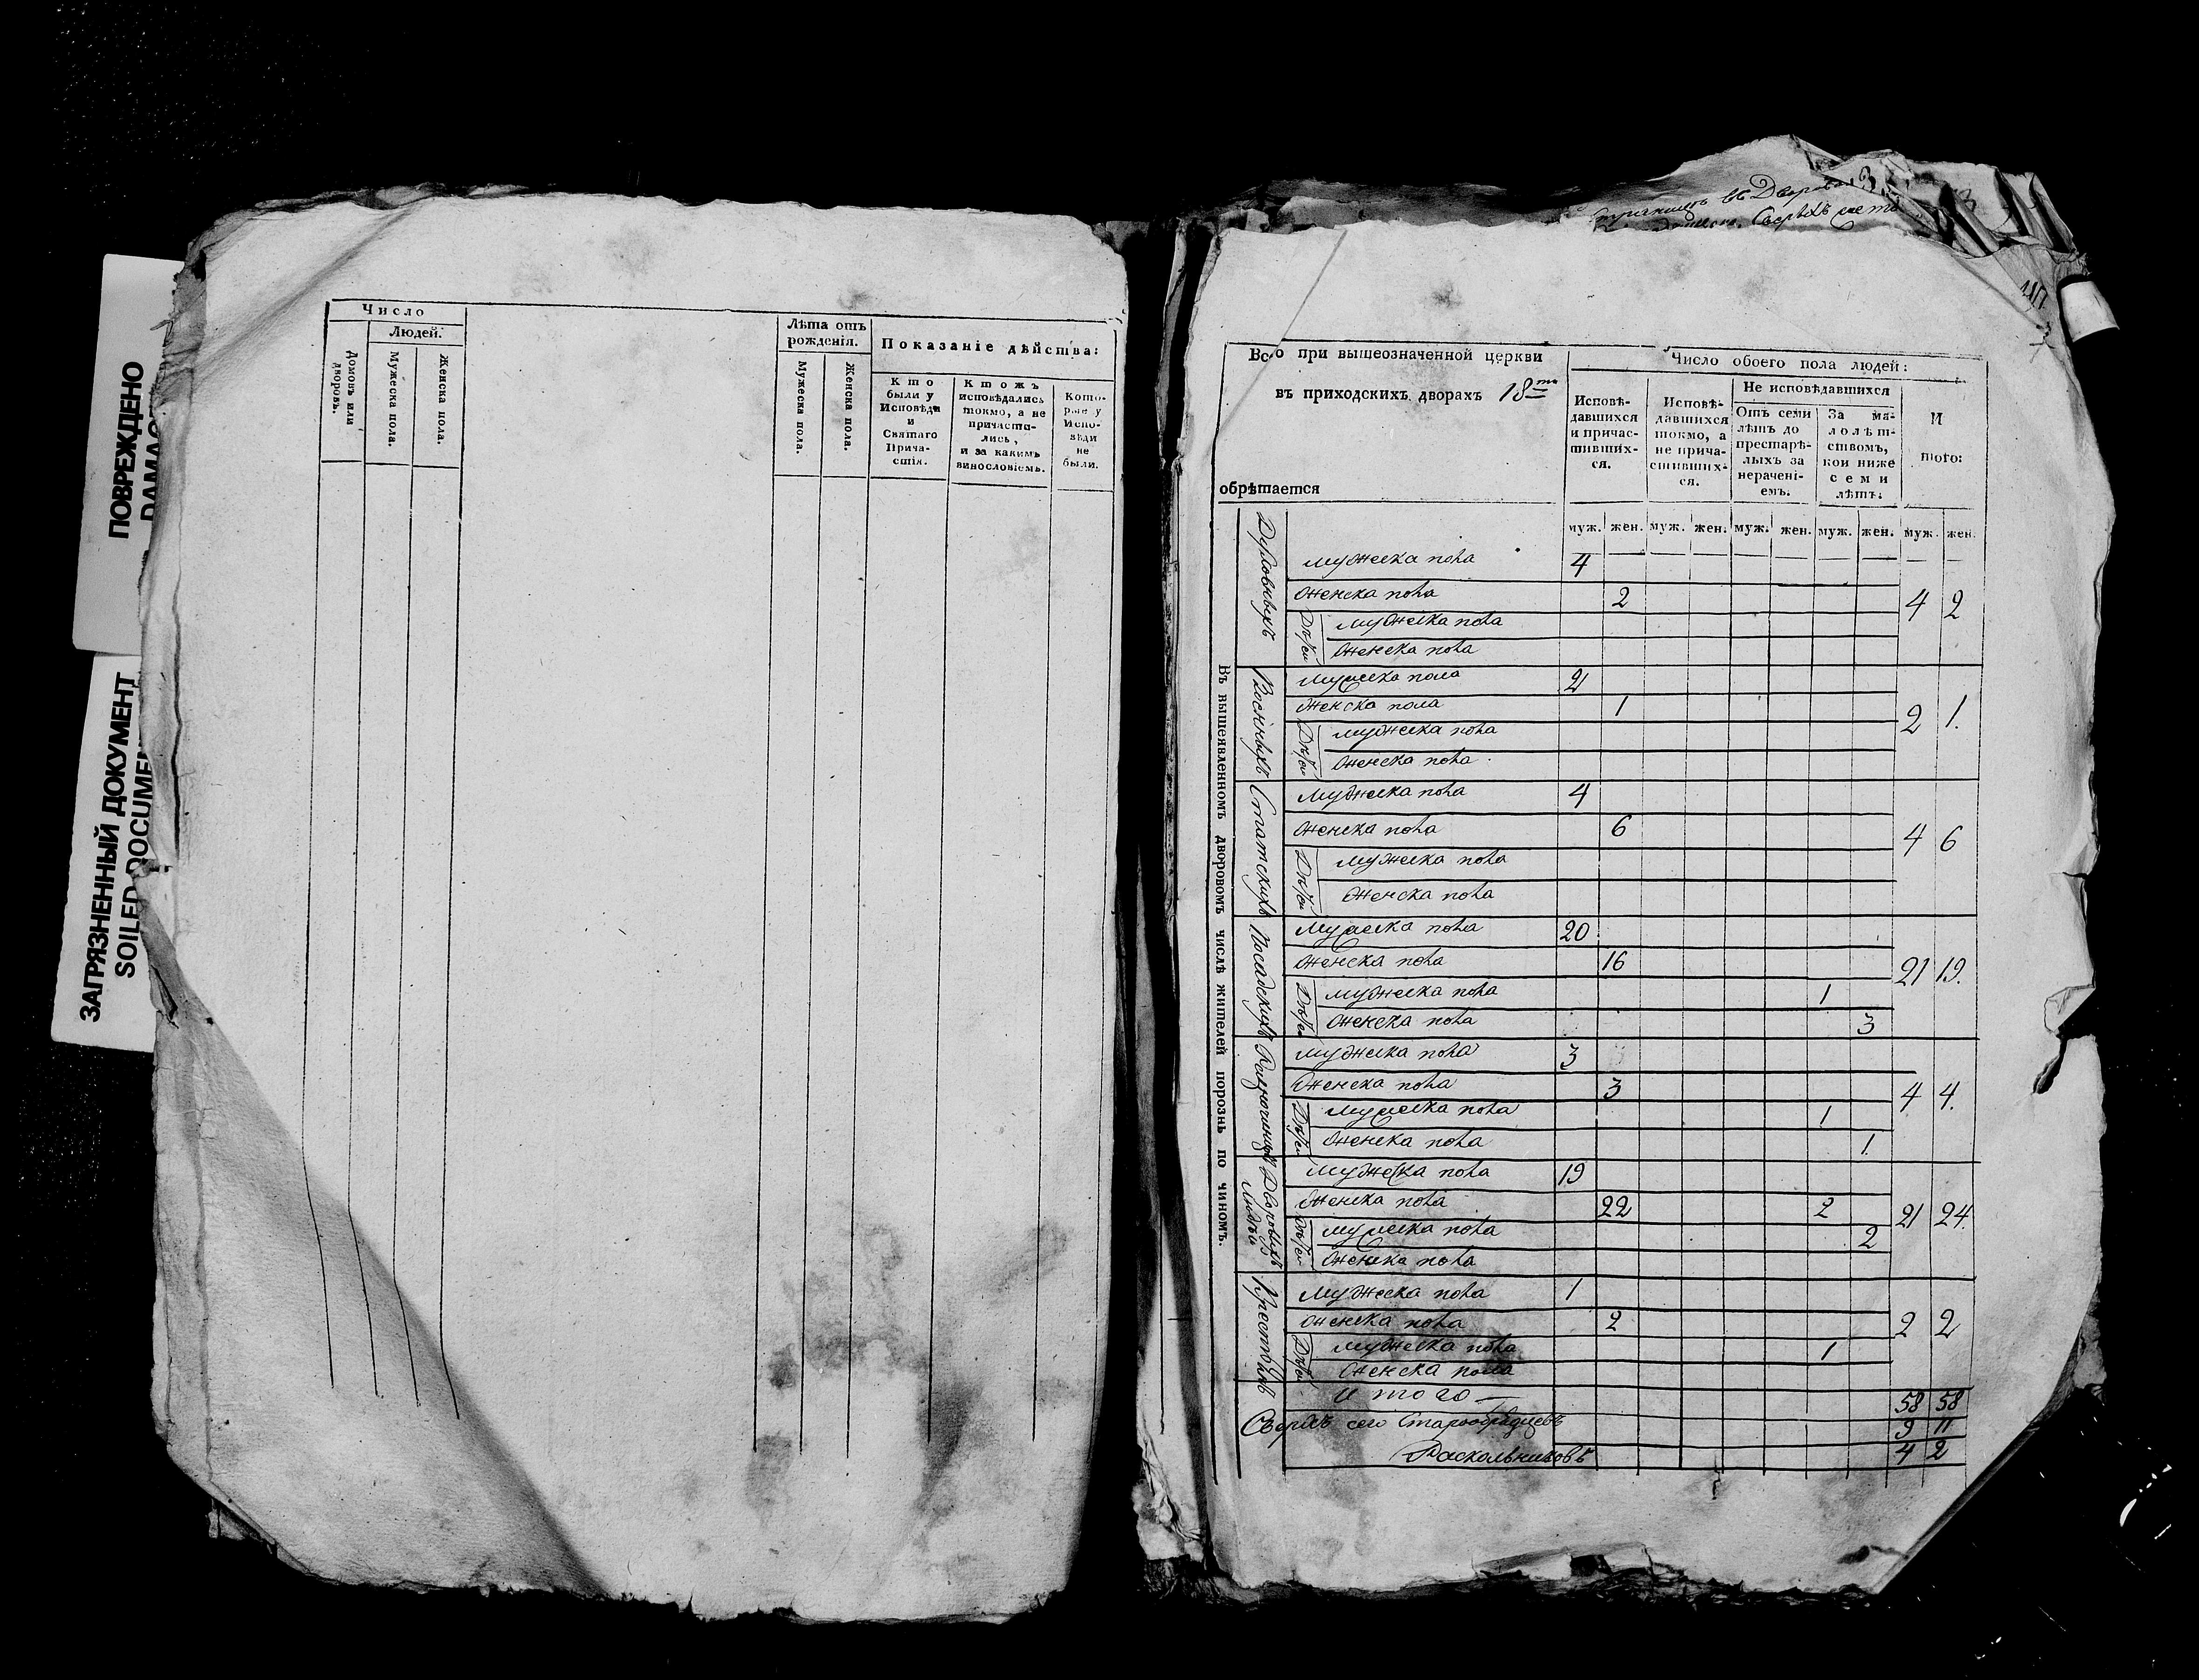 ПОВРЕЖДЕНО
ЗАГРЯЗНЕННЫЙ ДОКУМЕНТ
SOILED DOCUMEN
Число
Людей.
Домовъ или дворовъ.
Мужеска пола.
Женска пола.
Лѣта отъ рожденія.
Мужеска пола.
Женска пола.
Показаніе дѣйства:
Кто были у Исповѣди и Святаго Причастія.
Ктожъ исповѣдались токмо, а не причастались, и за какимъ винословіемъ.
Которые у Исповѣди не были.
Сверхъ
Всего при вышеозначенной церкви
въ приходскихъ дворахъ 18ти
обрѣтается
Число обоего пола людей:
Исповѣдавшихся и причастившихся.
Исповѣдавшихся токмо, а не причастившихся.
Не исповѣдавшихся
Отъ семи лѣтъ до престарѣлыхъ за нерачені-емъ.
За малолѣтствомъ, кои ниже семи лѣтъ.
И того:
муж. жен. муж. жен. муж. жен. муж. жен. муж. жен.
Въ вышеявленномъ дворовомъ числѣ жителей порознь по чиномъ.
Духовныхъ
мужеска пола 4
женска пола 2 4 2
Дѣтей
мужеска пола
женска пола
Военныхъ
мужеска пола 2
женска пола 1 2 1.
Дѣтей
мужеска пола
женска пола
Статскихъ
мужеска пола 4
женска пола 6 4 6
Дѣтей
мужеска пола
женска пола
Посадскихъ
мужеска пола 20
женска пола 16 21 19.
Дѣтей
мужеска пола 1
женска пола 3
Разночинцовъ
мужеска пола 3
женска пола 3 4 4.
Дѣтей
мужеска пола 1
женска пола 1.
Дворовыхъ людей
мужеска пола 19
женска пола 22 2 21 24.
Дѣтей
мужеска пола 2
женска пола
Крестьянъ
мужеска пола 1
женска пола 2 2 2
Дѣтей
мужеска пола 1
женска пола
итого 58 58
Сверхъ сего Старообрядцевъ 9 11
Раскольниковъ 4 2